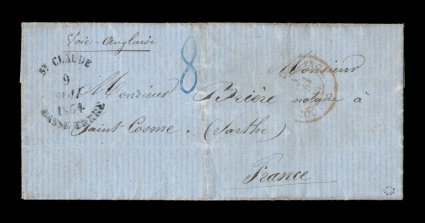 Voie Anglaise
St CLAUDE
9
1854
BASSE-TERRE
8
Monsieur
Monsieur Brière notaire à
Saint Cosme. (Sarthe)
France